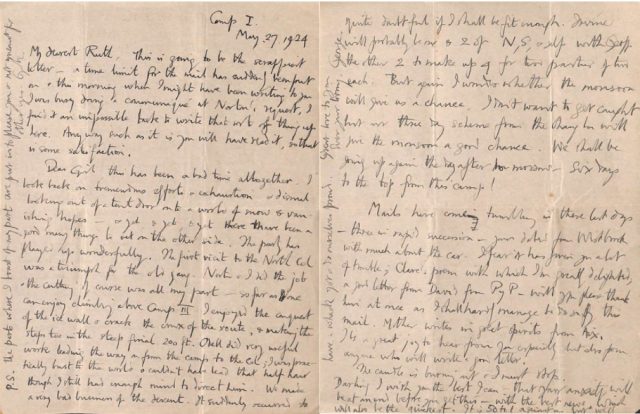 Camp I.
May. 27 1924
My dearest Ruth, This is going to be the scrappiest
letter – a time limit for the mail has suddenly been put
on & the morning when I might have been writing to you
I was busy doing a communiqué at Norton's request. I
find it an impossible task to write that sort of thing up
here. Anyway such as it is you will have read it, & that
is some satisfaction.
Dear Girl this has been a bad time altogether. I
look back on tremendous efforts & exhaustion & dismal
looking out of a tent door on to a world of snow & van-
ishing hopes – & yet, & yet, & yet there have been a
good many things to set on the other side. The party has
played up wonderfully. The first visit to the North Col
was a triumph for the old gang. Norton & I did the job
& the cutting of course was all my part – so far as one
can enjoy climbing above Camp III I enjoyed the conquest
of the ice wall & crack the crux of the route, & making the
steps too in the steep final 200 ft. Odell did very useful
work leading the way on from the camp to the Col; I was prac-
tically bust to the world & couldn't have led that half hour
though I still had enough mind to direct him. We made
a very bad business of the descent. It suddenly occurred to
P.S. the parts where I boast of my part are put in to please you & not meant for
other eyes. G.M.
quite doubtful if I shall be fit enough.
will probably be one &
the other 2 to make up
each. But again I wonder whether the monsoon
will give us a chance. I don't want to get caught
but our three day scheme from the Chang La will
give the monsoon a good chance. We shall be
going up again the day after to-morrow – Six days
to the top from this camp!
Mails have come tumbling in these last days
– three in rapid succession – your dated from Westbrook
with much about the car. I fear it has given you a lot
of trouble; Clare's poem with which I'm greatly delighted,
a good letter from David from PyP – will you please thank
him at once as I shall hardly manage to do so by this
mail. Mother writes in great spirits from Aix.
It's a great joy to hear from you especially but also from
anyone who will write a good letter.
The candle is burning out & I must stop.
Darling I wish you the best I can – that your anxiety will
be at an end before you get this – with the best news, which
will also be the quickest. It is 50 to 1 against us but we'll
have a whack yet & do ourselves proud. Great love to you
Ever your loving George.